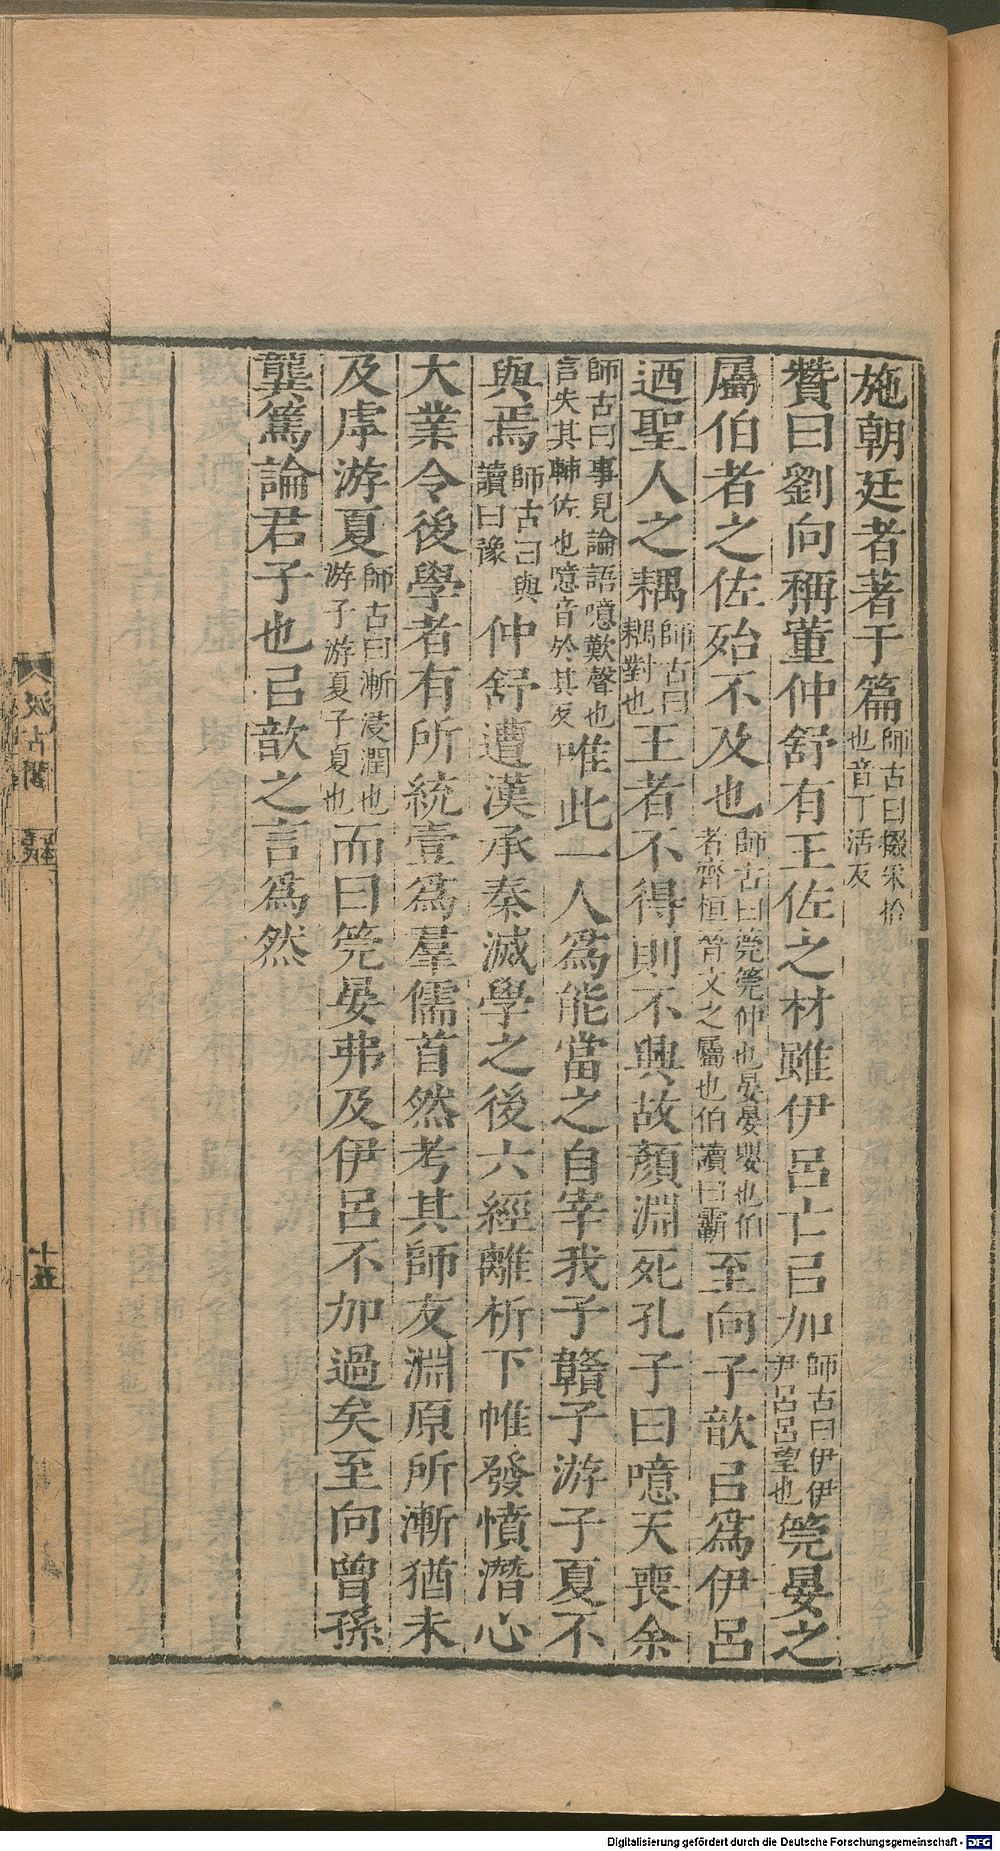 施朝廷者著于篇師古曰掇采拾也音丁活反
贊曰劉向稱董仲舒有王佐之材雖伊呂亡㠯加師古曰伊伊尹呂呂望也筦晏之
屬伯者之佐殆不及也師古曰筦筦仲也晏晏嬰也伯者齊桓晉文之屬也伯讀曰霸至向子歆㠯爲伊呂
迺聖人之耦師古曰耦對也王者不得則不興故顏淵死孔子曰噫天喪余
師古曰事見論語噫歎聲也言失其輔佐也噫音於其反唯此一人爲能當之自宰我子贛子游子夏不
與焉師古曰與讀曰豫仲舒遭漢承秦滅學之後六經離析下帷發憤潛心
大業令後學者有所統壹爲羣儒首然考其師友淵原所漸猶未
及虖游夏師古曰漸浸潤也游子游夏子夏也而曰筦晏弗及伊呂不加過矣至向曾孫
龔篤論君子也㠯歆之言爲然
汲古閣
十五
Digitalisierung gefördert durch die Deutsche Forschungsgemeinschaft - DFG